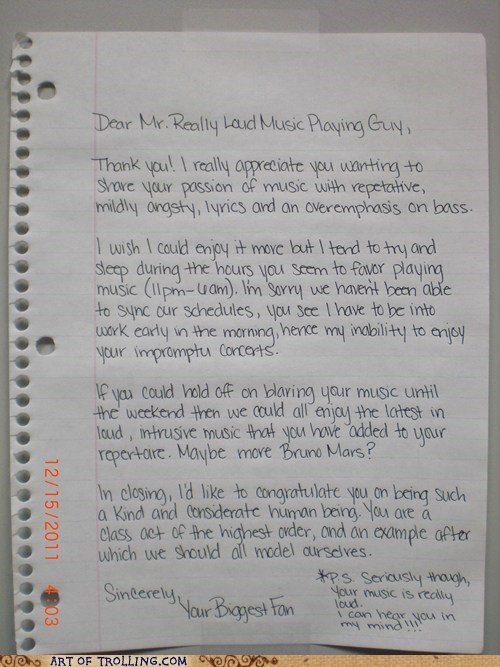 Dear Mr. Really Loud Music Playing Guy,
Thank you! I really appreciate you wanting to
share your passion of music with repetative,
mildly angsty, lyrics and an overemphasis on bass.
I wish I could enjoy it more but I tend to try and
sleep during the hours you seem to favor playing
music (11pm-4am). I'm sorry we haven't been able
to sync our schedules, you see I have to be into
work early in the morning, hence my inability to enjoy
your impromptu concerts.
If you could hold off on blaring your music until
the weekend then we could all enjoy the latest in
loud, intrusive music that you have added to your
repertare. Maybe more Bruno Mars?
In closing, I'd like to congratulate you on being such
a kind and considerate human being. You are a
class act of the highest order, and an example after
which we should all model ourselves.
Sincerely,
Your Biggest Fan
*P.S. Seriously though,
your music is really
loud.
I can hear you in
my mind!!!
12/15/2011
ART OF TROLLING.COM